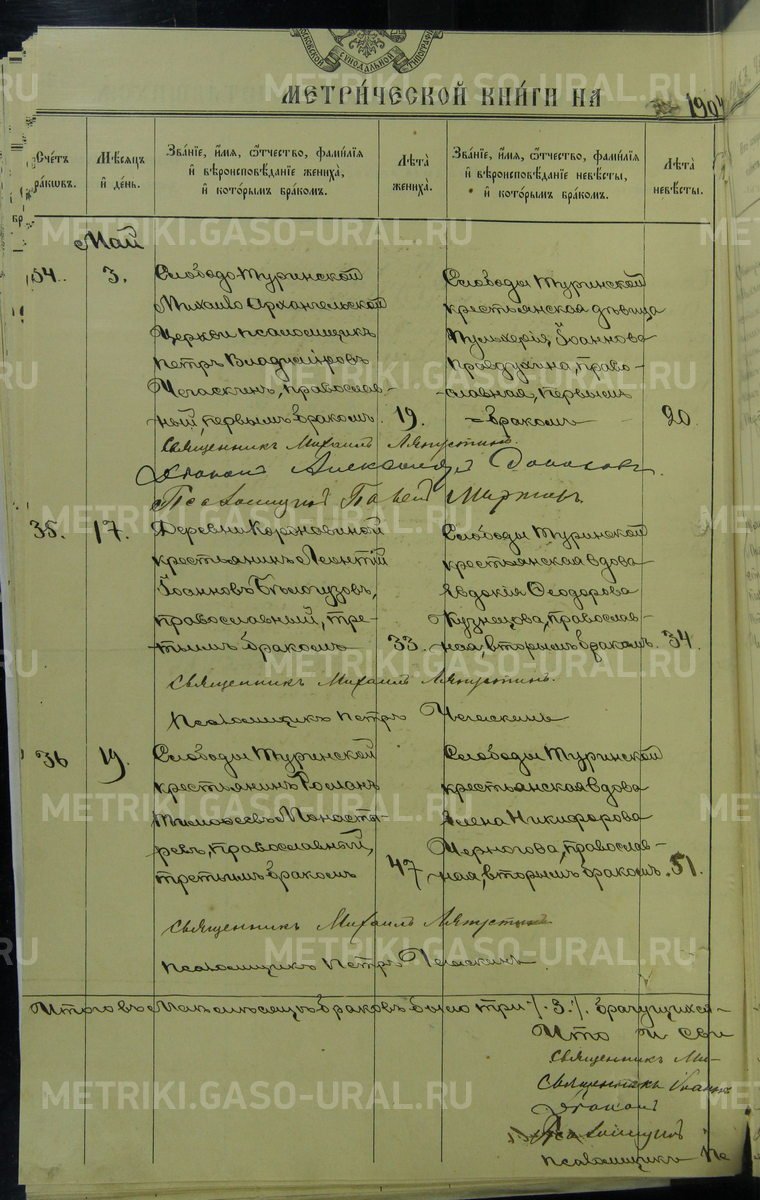 МОСКОВСКОЙ СУНОДАЛЬНОЙ ТИПОГРАФІИ
МЕТРИ́ЧЕСКОЙ КНИ́ГИ НА 1904
Счетъ браковъ.
Мѣсяцъ и день.
Званіе, имя, отчество, фамилія и вѣроисповѣданіе жениха, и которымъ бракомъ.
Лѣта жениха.
Званіе, имя, отчество, фамилія и вѣроисповѣданіе невѣсты, и которымъ бракомъ.
Лѣта невѣсты.
Май
34. 3. Слободо Туринской
Михаило Архангельской
церкви псаломщикъ
Петръ Владиміровъ
Чегаскинъ, православ-
ный, первымъ бракомъ. 19.
Слободы Туринской
крестьянская дѣвица
Пульхерія Іоаннова
Проедухина, право-
славная, первымъ
бракомъ 20
Священникъ Михаилъ Ляпустинъ.
Діаконъ Александръ
Псаломщикъ Павелъ
35. 17. Деревни
крестьянинъ Леонтій
Іоанновъ Бѣлогузовъ,
православный, тре-
тьимъ бракомъ 33.
Слободы Туринской
крестьянская вдова
Евдокія Ѳеодорова
Кузнецова, православ-
ная, вторымъ бракомъ. 34.
Священникъ Михаилъ Ляпустинъ.
Псаломщикъ Петръ Чегаскинъ
36 19. Слободы Туринской
крестьянинъ Романъ
Тимофеевъ Монасты-
ревъ, православный,
третьимъ бракомъ 47
Слободы Туринской
крестьянская вдова
Елена Никифорова
Черногова, православ-
ная, вторымъ бракомъ. 51.
Священникъ Михаилъ Ляпустинъ
Псаломщикъ Петръ Чегаскинъ.
Итого въ Маѣ мѣсяцѣ браковъ было три /.3./. брачущихся
Что и сви
Священникъ Ми-
Священникъ Іоаннъ
Діаконъ
Псаломщикъ
Псаломщикъ Пе
METRIKI.GASO-URAL.RU